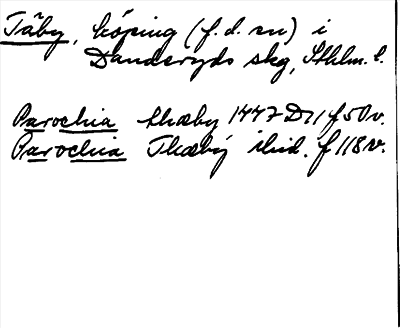 Täby, köping (f.d. sn) i
Danderyds skg, Sthlm. l.
Parochia thæby 1447 D 11 f 50 v.
Parochia Thæby ibid. f 118 v.